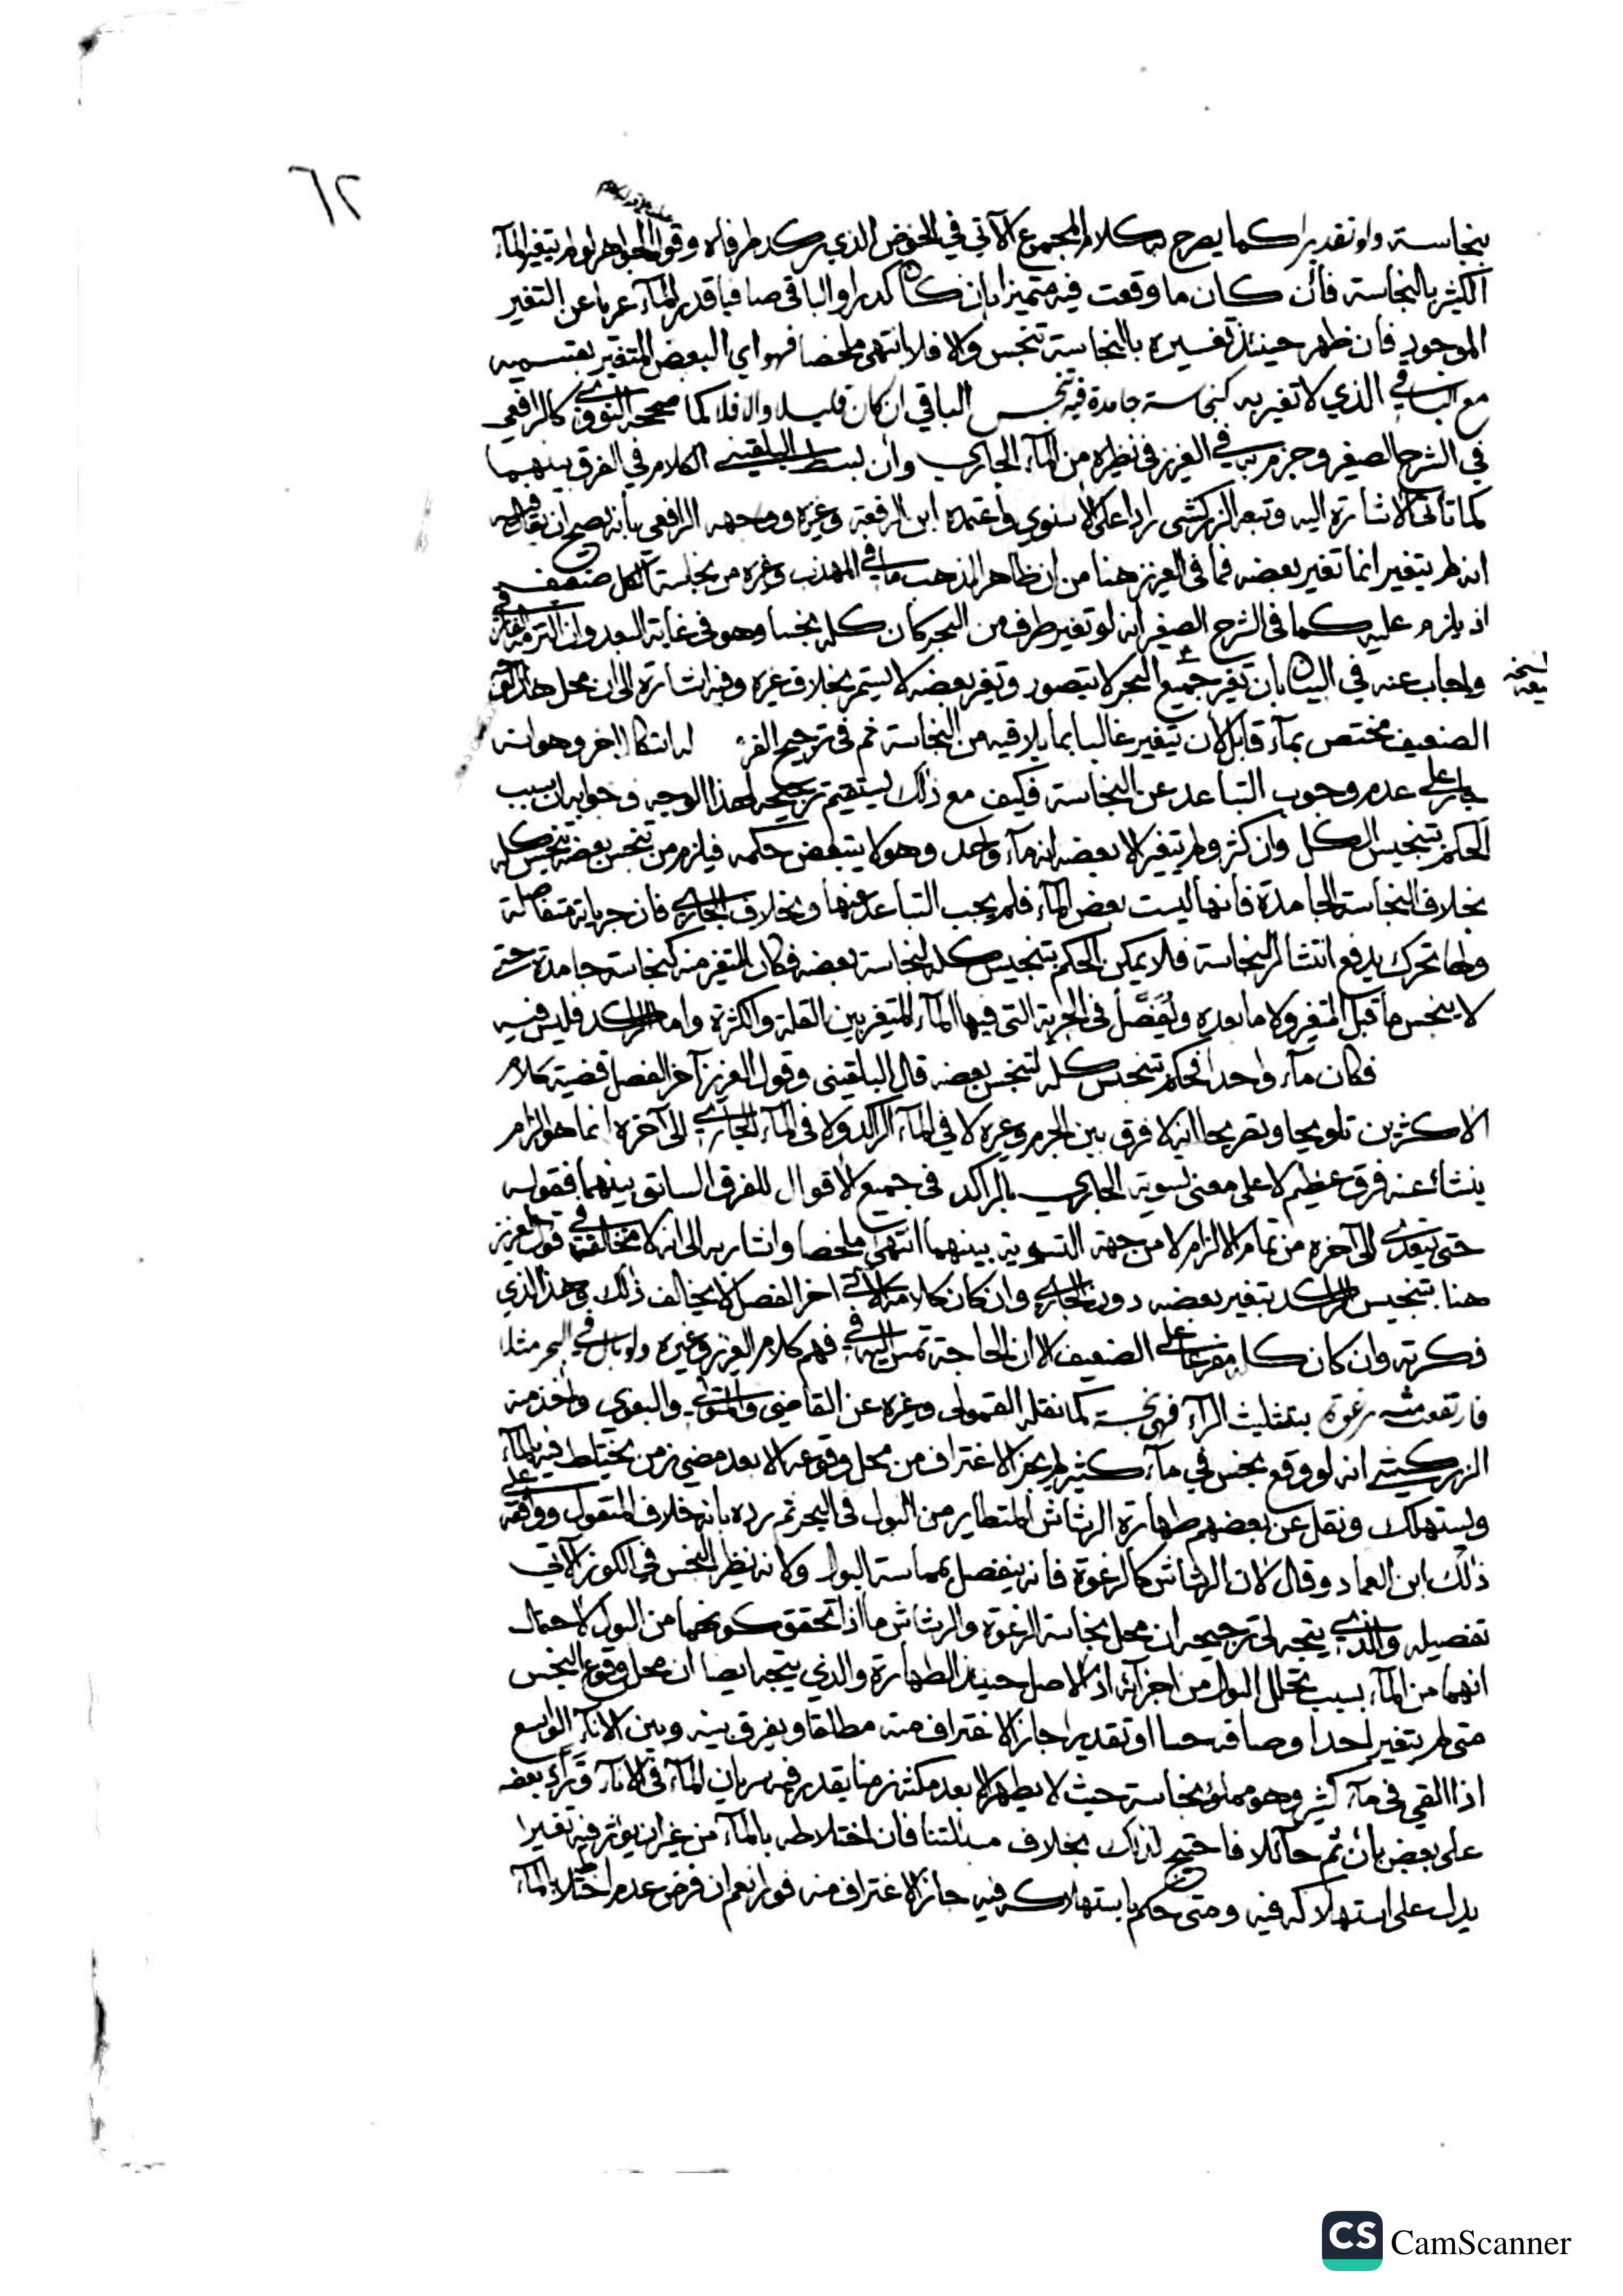 ٦٢
بنجاسة ولو تقديرا كما يصرح به كلام المجموع الآتي في الحوض الذي يركد طرفاه وقول الجواهر لو لم يتغير الماء
الكثير بالنجاسة فان كان ما وقعت فيه متميزا بان كان كدرا والباقي صافيا قدر الماء عريا عن التغير
الموجود فان ظهر حينئذ تغسيره بالنجاسة تنجس والا فلا انتهى ملخصا فهو اي البعض المتغير بقسميه
مع الباقي الذي لا تغير به كنجاسة جامدة فيتنجس الباقي ان كان قليلا والا فلا كما صححه النووي كالرافعي
في الشرح الصغير وجزم به في العزيز في نظيره من الماء الجاري وان بسط البلقيني الكلام في الفرق بينهما
كما تأتي الاشارة اليه وتبعه الزركشي رادا على الاسنوي واعتمده ابن الرفعة وغيره ووجهه الرافعي بانه يصح ان يقال فيه
انه لم يتغير انما تغير بعضه فما في العزيز هنا من ان ظاهر المذهب ما في المهذب وغيره من نجاسة الكل ضعيف
اذ يلزم عليه كما في الشرح الصغير انه لو تغير طرف من البحر كان كله نجسا وهو في غاية البعد وان التزمه
واجاب عنه في البيان بان تغير جميع البحر لا يتصور وتغير بعضه لا يستمر بخلاف غيره وفيه اشارة الى ان محل هذا
الضعيف مختص بماء قابل لان يتغير غالبا بما يلاقيه من النجاسة ثم في ترجيح له اشكال اخر وهو انه
جار على عدم وجوب التباعد عن النجاسة فكيف مع ذلك يستقيم ترجيحه لهذا الوجه وجوابه ان سبب
الحكم بتنجيس الكل وان كثر ولم يتغير الا بعضه انه ماء واحد وهو لا يتبعض حكمه فيلزم من تنجس بعضه تنجس كله
بخلاف النجاسة الجامدة فانها ليست بعض الماء فلم يجب التباعد عنها وبخلاف الجاري فان جرياته متفاصلة
ولها تحرك يدفع انتشار النجاسة فلا يمكن الحكم بتنجيس كله لنجاسة بعضه فكان المتغير منه كنجاسة جامدة حتى
لا ينجس ما قبل المتغير ولا ما بعده ويُفَصَّل في الجرية التي فيها الماء المتغير بين القلة والكثرة واما الراكد فليس فيه
فكان ماء واحدا فحكم بتنجس كله لتنجس بعضه قال البلقيني وقول العزيز آخر الفصل قضية كلام
الاكثرين تلويحا وتصريحا انه لا فرق بين الجرم وغيره لا في الماء الراكد ولا في الماء الجاري الى آخره انما هو الزام
ينشاء عنه فرق عظيم لا على معنى تسوية الجاري بالراكد في جميع الاقوال للفرق السابق بينهما فقوله
حتى يتعدى الى آخره من تمام الالزام لا من جهة التسوية بينهما انتهى ملخصا واشار به الى انه لا مخالفة في قول العزيز
هنا بتنجيس الراكد بتغير بعضه دون الجاري وان كان كلامه الاتي اخر الفصل لا يخالف ذلك وهذا الذي
ذكرته وان كان كله مفرعا على الضعيف الا ان الحاجة تمس اليه في فهم كلام العزيز وغيره ولو بال في البحر مثلا
فارتفعت منه رغوة بتثليث الراء فهي نجسة كما نقله القمولي وغيره عن القاضي والمتولي والبغوي واخذ منه
الزركشي انه لو وقع نجس في ماء كثير لم يجز الاغتراف من محل وقوعه الا بعد مضي زمن يختلط فيه بالماء
ويستهلك ونقل عن بعضهم طهارة الرشاش المتطاير من البول في البحر ثم رده بانه خلاف المنقول ووافقه على
ذلك ابن العماد وقال لان الرشاش كالرغوة فانه ينفصل بمماسة البول وكانه نظير النجس في الكوز الآتي
تفصيله والذي يتجه لي ترجيحه ان محل نجاسة الرغوة والرشاش ما اذا تحقق كونهما من البول لاحتمال
انهما من الماء بسبب تخلل البول من اجزائه اذ الاصل حينئذ الطهارة والذي يتجه ايضا ان محل وقوع النجس
متى لم يتغير احد اوصافه حسا او تقديرا جاز الاغتراف منه مطلقا ويفرق بينه وبين الاناء الواسع
اذا القي في ماء كثير وهو مملؤ بنجاسة حيث لا يطهر الا بعد مكثه زمنا يقدر فيه سريان الماء في الاناء وتراد بعضه
على بعض بان ثم حائلا فاحتيج لذلك بخلاف مسئلتنا فان اختلاطه بالماء من غير ان يؤثر فيه تغيرا
يدل على استهلاكه فيه ومتى حكم باستهلاكه فيه جاز الاغتراف منه فورا نعم ان فرض عدم اختلاطه بالماء
CS CamScanner